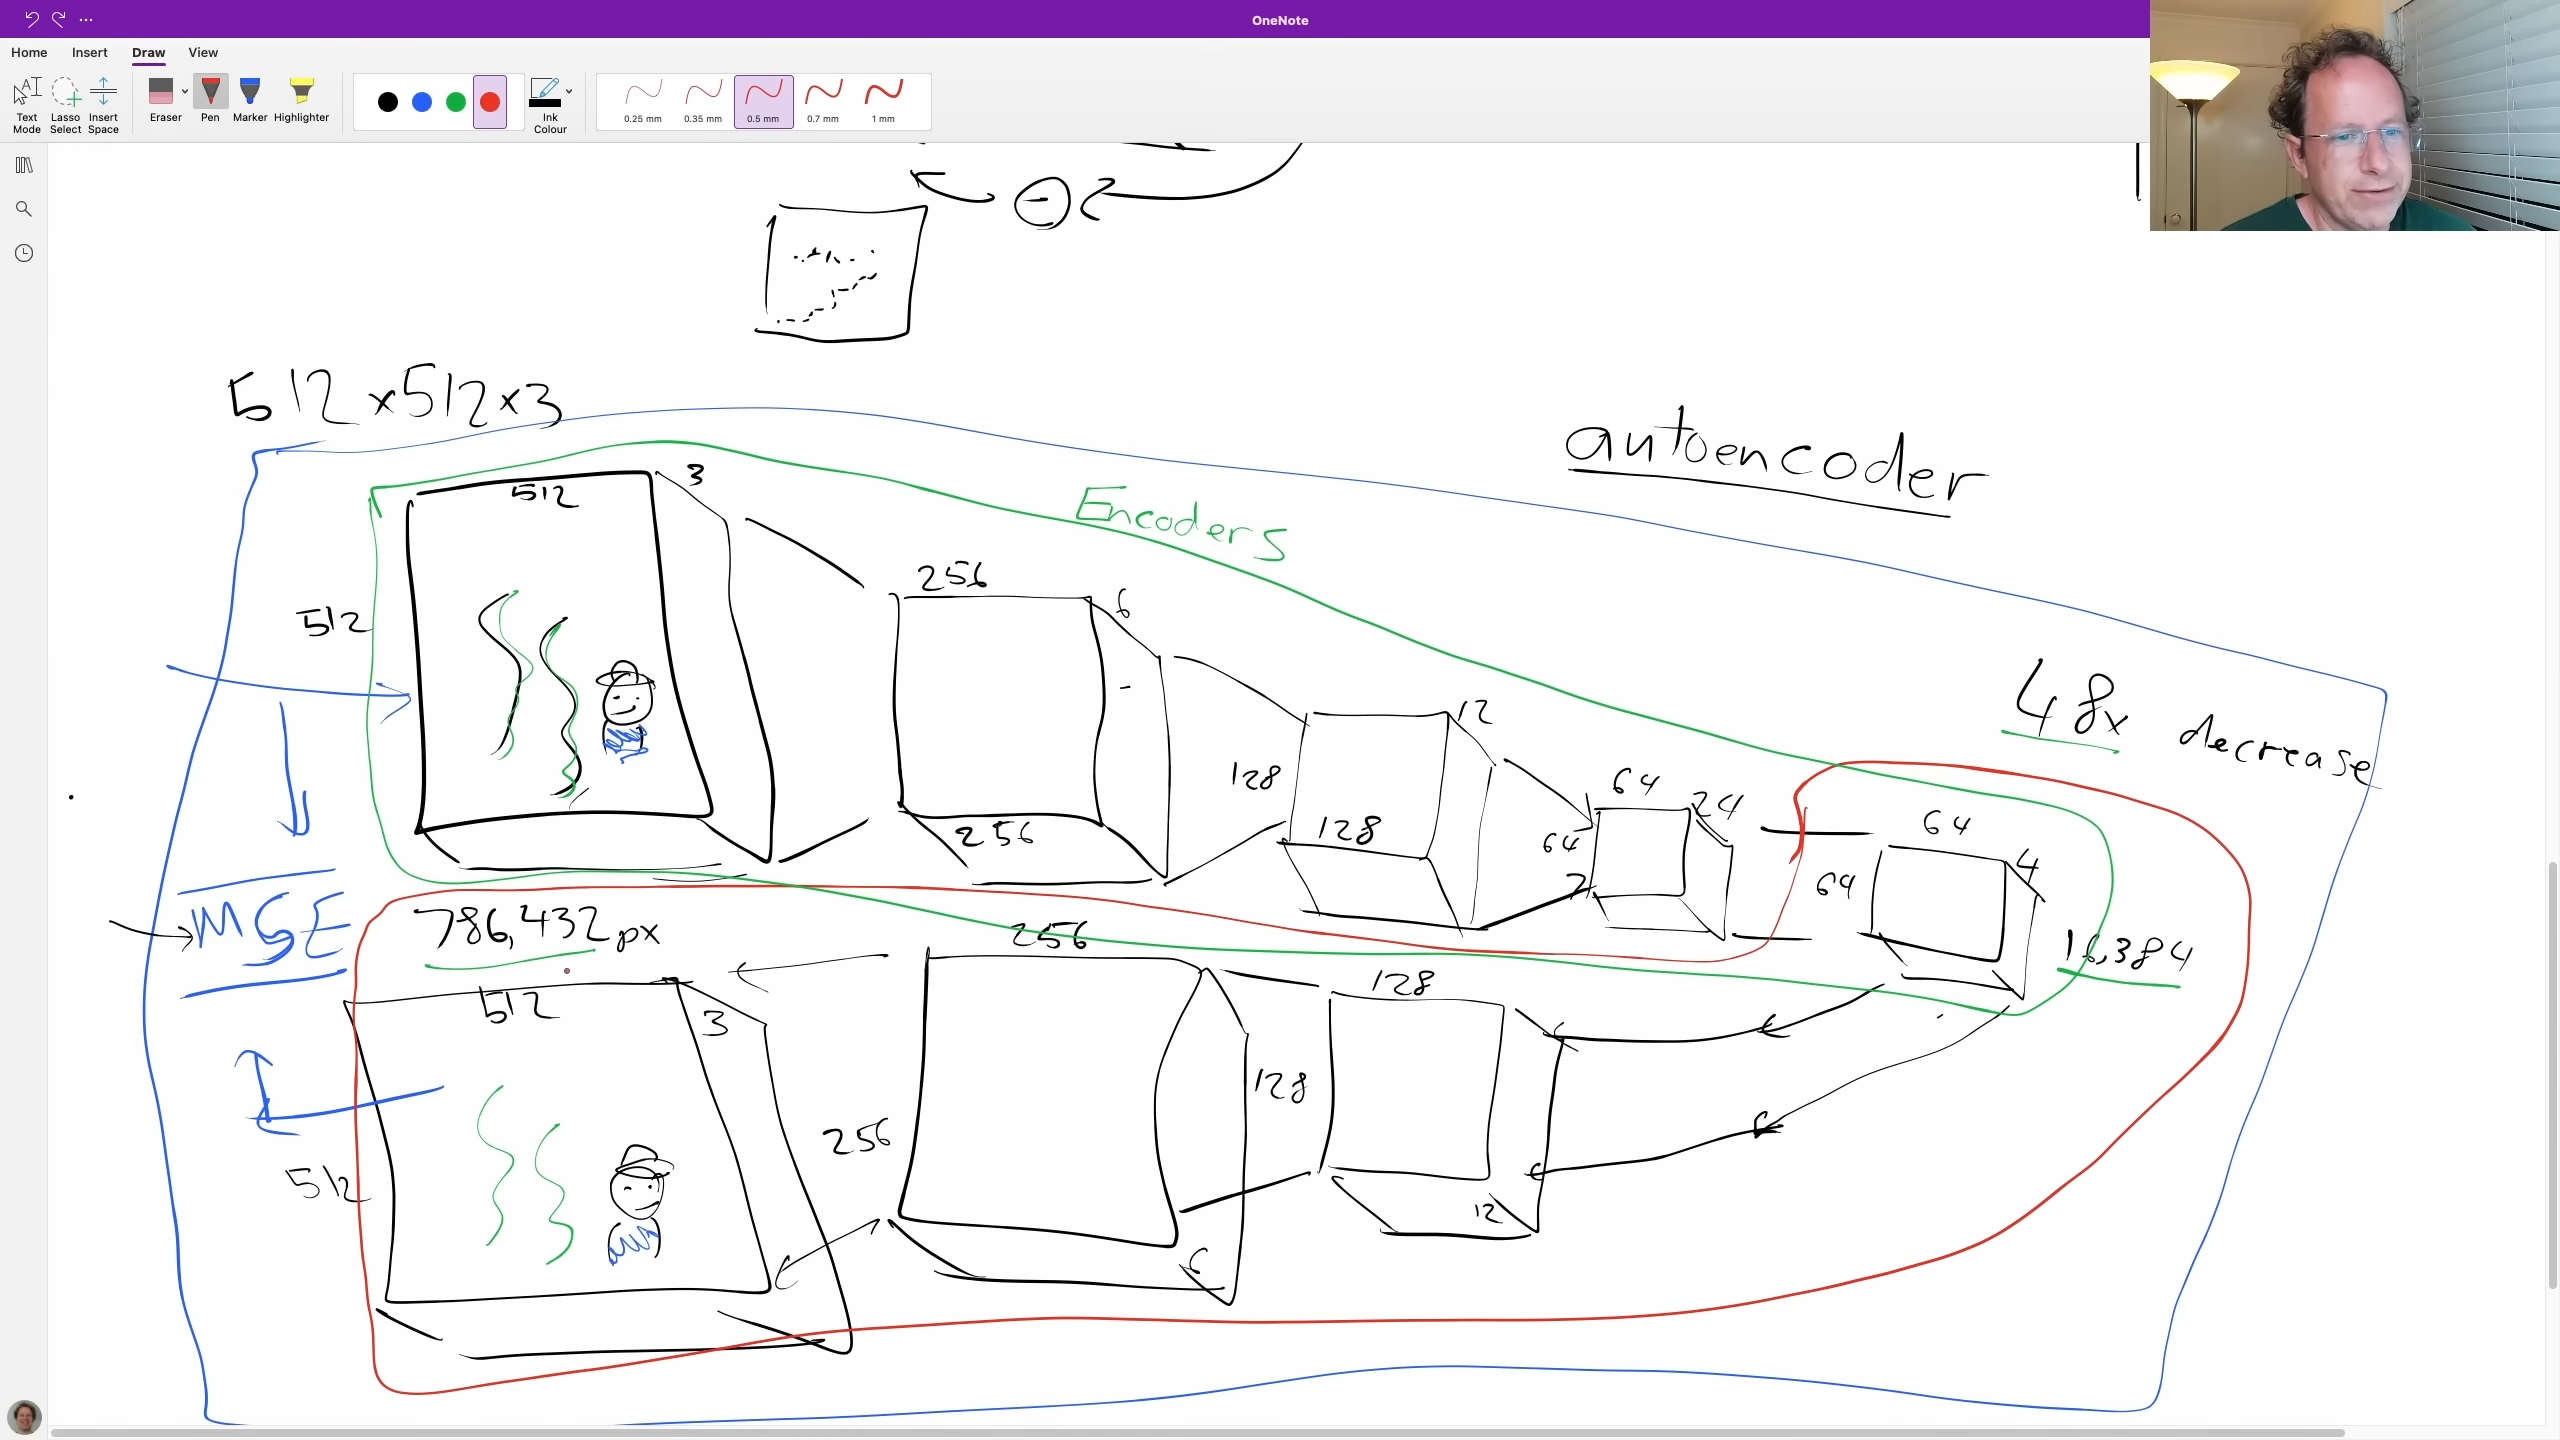 OneNote
Home Insert Draw View
Text Mode
Lasso Select
Insert Space
Eraser
Pen
Marker
Highlighter
Ink Colour
0.25 mm
0.35 mm
0.5 mm
0.7 mm
1 mm
512×512×3
autoencoder
Encoders
512
3
512
256
6
256
12
128
128
64
24
64
48x decrease
64
4
64
16,384
MSE
786,432 px
256
128
512
3
128
256
512
12
6